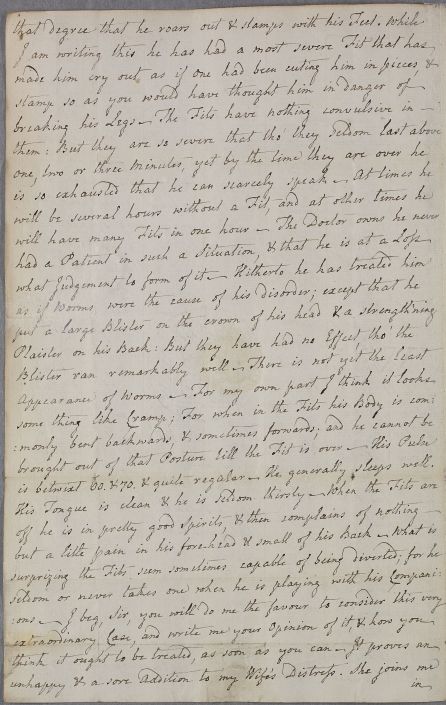 that degree that he roars out & stamps with his Feet. While
I am writing this he has had a most severe Fit that has
made him cry out as if one had been cuting him in pieces &
stamp so as you would have thought him in danger of
breaking his Legs – The Fits have nothing convulsive in –
them: But they are so severe that tho' they seldom last above
one, two or three minutes, yet by the time they are over he
is so exhausted that he can scarcely speak – At times he
will be several hours without a Fit and at other times he
will have many Fits in one hour – The Doctor owns he never
had a Patient in such a Situation, & that he is at a Loss
what Judgement to form of it – Hitherto he has treated him
as if Worms were the cause of his disorder; except that he
put a large Blister on the crown of his head & a strengthning
Plaister on his Back: But they have had no Effect tho' the
Blister ran remarkably well – There is not yet the least
Appearance of Worms – For my own part I think it looks
some thing like Cramp; For when in the Fits his Body is com:
:monly bent backwards, & sometimes forwards, and he cannot be
brought out of that Posture till the Fit is over – His Pulse
is betwixt 60. & 70. & quite regular – He generally sleeps well.
His Tongue is clean & he is seldom thirsty – When the Fits are
off he is in pretty good spirits, & then complains of nothing –
but a little pain in his forehead & small of his Back – What is
surprizing the Fits seem sometimes capable of being diverted; for he
seldom or never takes one when he is playing with his Compani:
:ons – I beg, Sir, you will do me the favour to consider this very
extraordinary Case, and write me your Opinion of it & how you
think it ought to be treated, as soon as you can – It proves an
unhappy & a sore addition to my Wife's Distress. She joins me
in